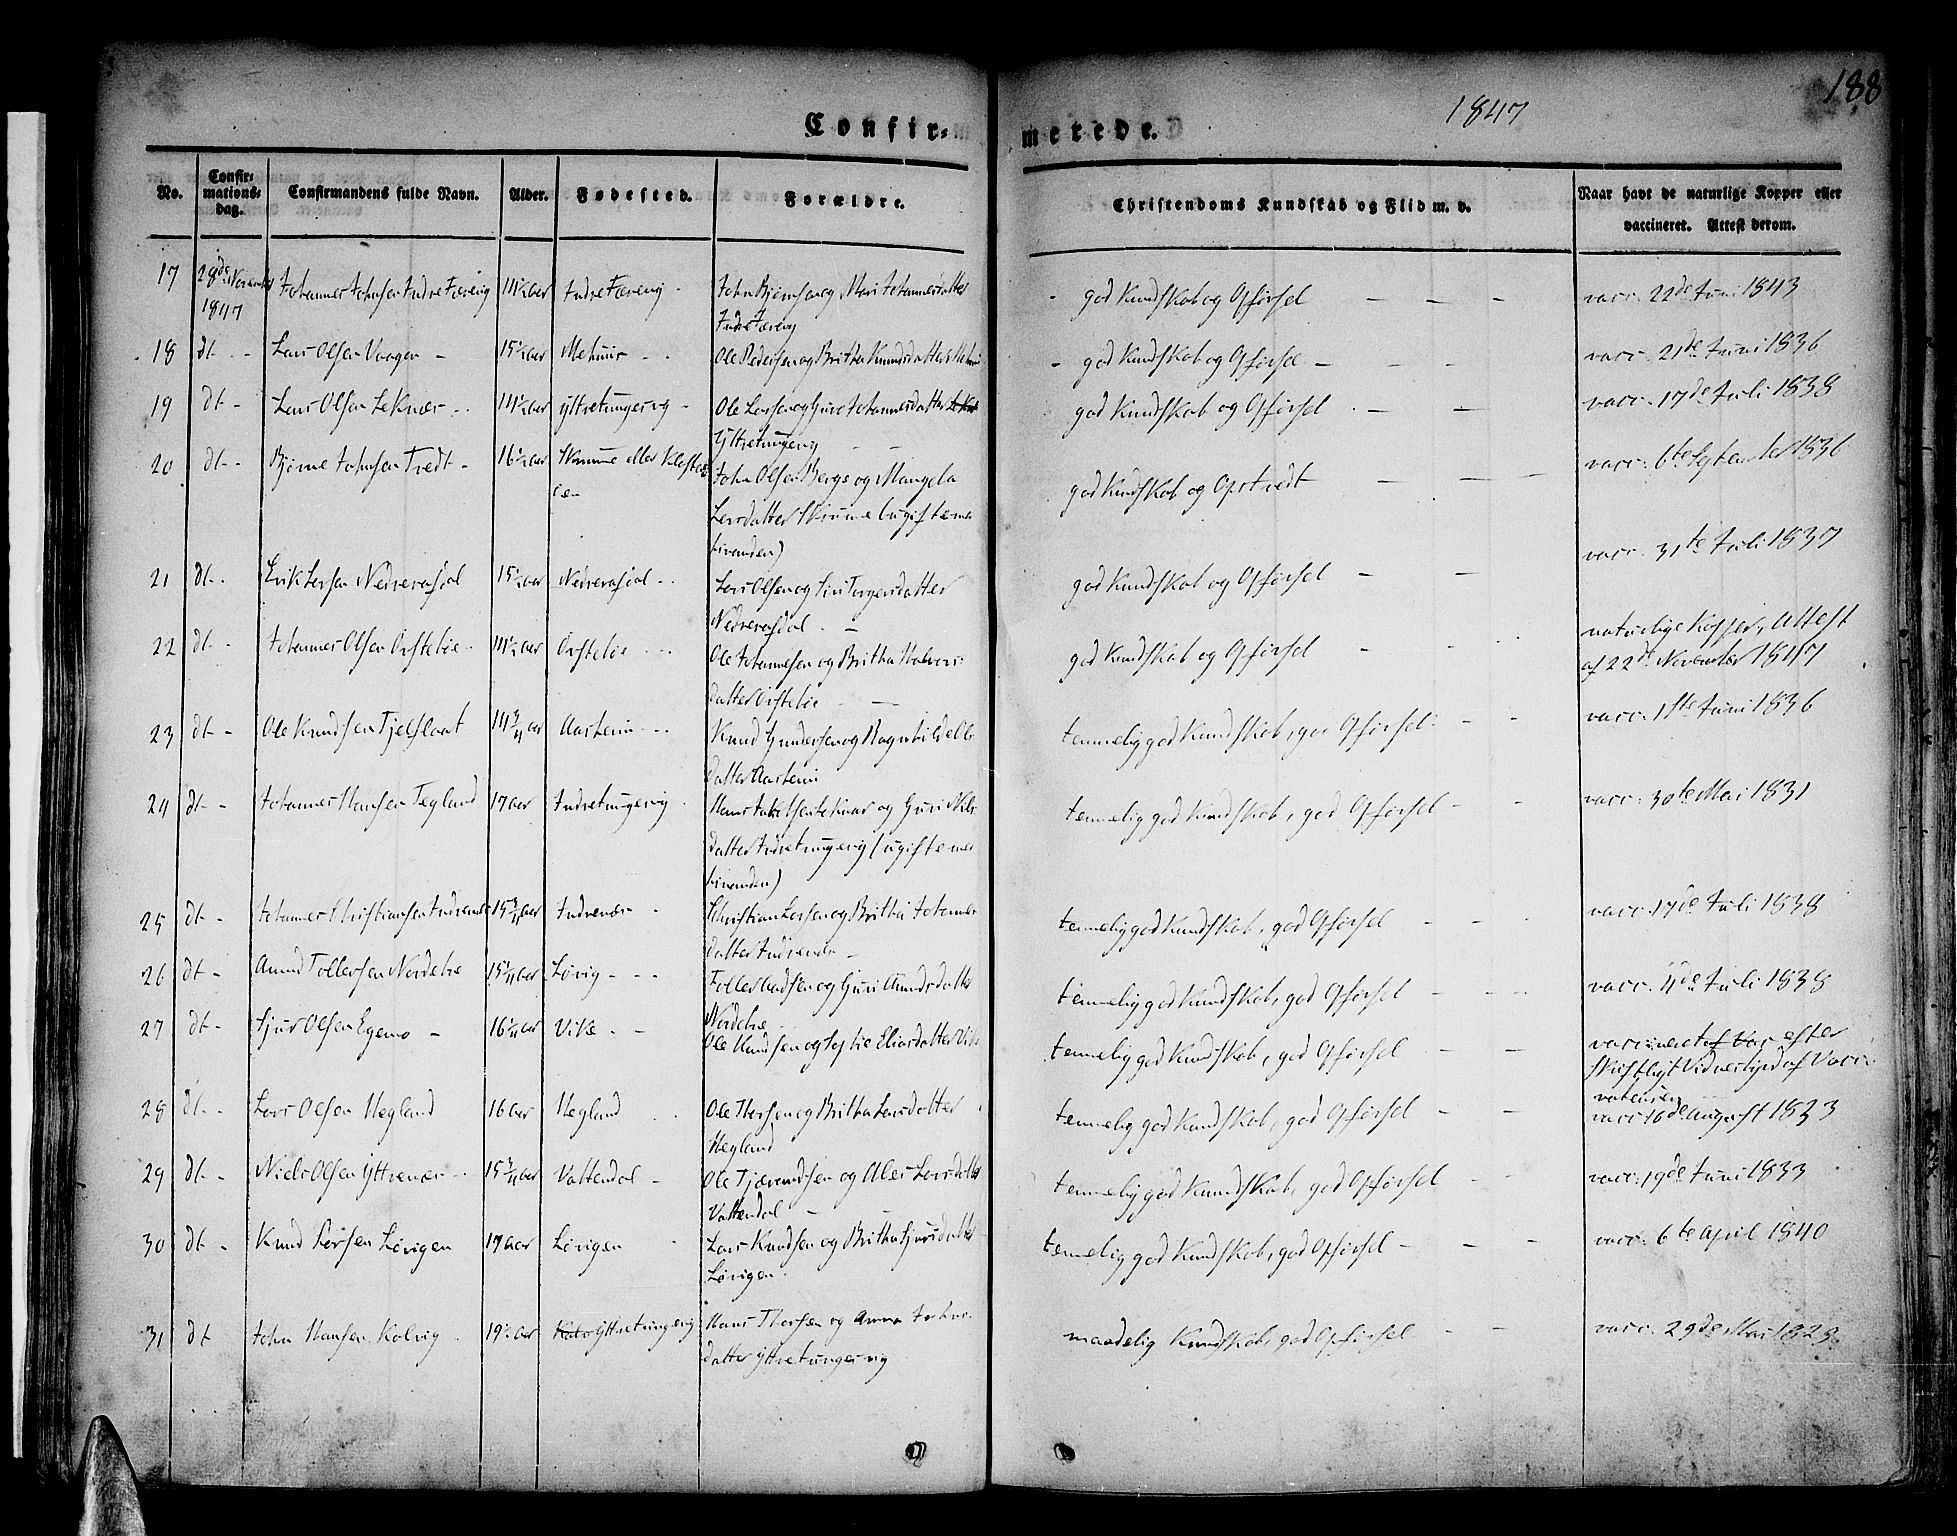 188
1847
Confir-
merede.
No.
Confir-
mations-
dag.
Confirmandens fulde Navn.
Alder.
Fødested.
Forældre.
Christendoms Kundskab og Flid m. v.
Naar havt de naturlige Kopper eller
vaccineret. Attest derom.
17 28de November Johannes Johnsen Indre 14½ aar Indre John Bjørnsen og Mari Johannesdatter god Kundskab og Opførsel vacc. 22de Juni 1843
1847
18 dt Lars Olsen Vaagen 15½ aar Ole Pedersen og Britha Knudsdatter god Kundskab og Opførsel vacc. 21de Juni 1836
19 dt Lars Olsen Leknæs 14½ aar Ole Larsen og Guri Johannesdatter god Kundskab og Opførsel vacc. 17de Juli 1838
20 dt Bjørne Johnsen Tvedt 16½ aar Skrumme eller John Olsen Berge og Mangela god Kundskab og Opførsel vacc. 6te September 1836
Larsdatter Skrumme (ugifte med
hinanden)
21 dt Erik Larsen Nedreaasdal 15½ aar Nedreaasdal Lars Olsen og Siri Torgersdatter god Kundskab og Opførsel vacc. 31te Juli 1837
Nedreaasdal
22 dt Johannes Olsen 14½ aar Ole Johannesen og Britha Halvors- god Kundskab og Opførsel naturlige Kopper, Attest
datter
af 22de November 1847
23 dt Ole Knudsen Tjelflaat 14¾ aar Aarhein Knud Gundersen og Ragnhilde Ols- temmelig god Kundskab, god Opførsel vacc. 1ste Juni 1836
datter Aarhein
24 dt Johannes Hansen Tegland 17 aar Hans og Guri Nels- temmelig god Kundskab, god Opførsel vacc. 30te Mai 1831
datter (ugifte med
hinanden)
25 dt Johannes Christiansen Indrenæs 15¾ aar Indrenæs Christian Larsen og Britha Johannes- temmelig god Kundskab, god Opførsel vacc. 17de Juli 1838
datter Indrenæs
26 dt Amund Tollefsen 15¼ aar Løvig Tollef og Guri Amundsdatter temmelig god Kundskab, god Opførsel vacc. 4de Juli 1838
27 dt Sjur Olsen Egemo 16½ aar Vike Ole og Sophie Eliasdatter Vike temmelig god Kundskab, god Opførsel vaccineret efter
skriftligt Vidnesbyrd af Vacci-
28 dt Lars Olsen Hegland 16 aar Hegland Ole Thorsen og Britha Larsdatter temmelig god Kundskab, god Opførsel vacc. 16de August 1833
Hegland
29 dt Niels Olsen Yttrenæs 15¾ aar Vattendal Ole Tjerandsen og Ales Larsdatter temmelig god Kundskab, god Opførsel vacc. 19de Juni 1833
Vattendal
30 dt Knud Larsen Løvigen 17 aar Løvigen Lars Knudsen og Britha Sjursdatter temmelig god Kundskab, god Opførsel vacc. 6te April 1840
Løvigen
31 dt John Hansen Kolvig 19½ aar Hans Thorsen og Anna maadelig Kundskab, god Opførsel vacc. 29de Mai
datter